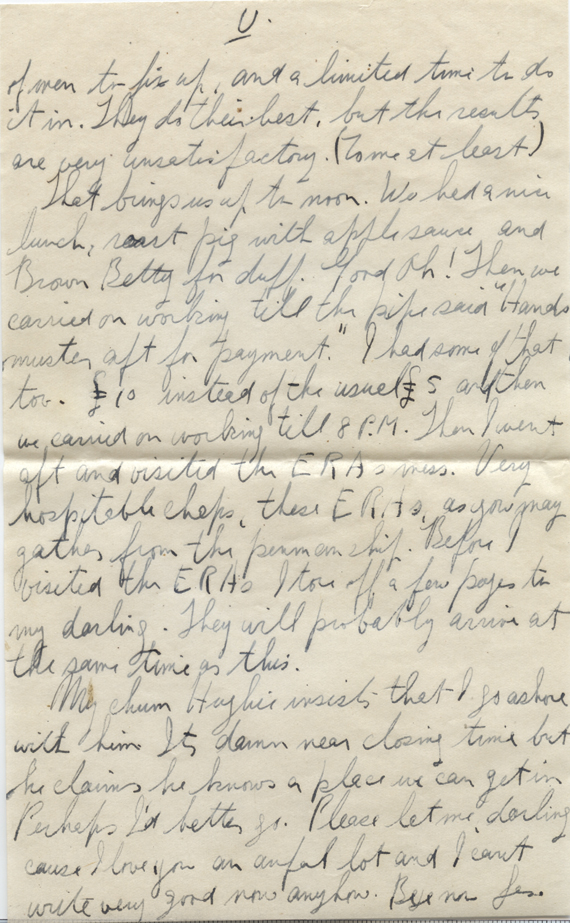 V.
of men to fix up, and a limited time to do
it in. They do their best, but the results
are very unsatisfactory. (To me at least)
That brings us up to noon. We had a nice
lunch, roast pig with applesauce and
Brown Betty for duff. Good Oh! Then we
carried on working till the pipe said "Hands
muster aft for payment." I had some of that
too. £10 instead of the usual £5 and then
we carried on working till 8 P.M. Then I went
aft and visited the ERAs mess. Very
hospitable chaps, these ERAs, as you may
gather from the penmanship. Before I
visited the ERAs I tore off a few pages to
my darling. They will probably arrive at
the same time as this.
My chum Hughie insists that I go ashore
with him. Its damn near closing time but
he claims he knows a place we can get in
Perhaps I'd better go. Please let me darling
cause I love you an awful lot and I can't
write very good now anyhow. Bye now